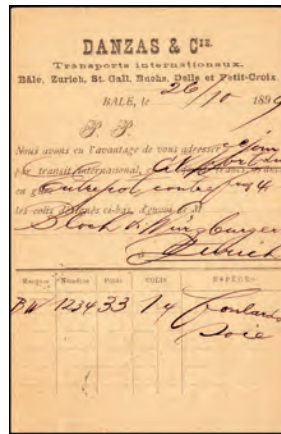 DANZAS & CIE.
Transports internationaux.
Bâle, Zurich, St. Gall, Buchs, Delle et Petit-Croix.
BALE, le 26/10 1899
P. P.
Nous avons eu l'avantage de vous adresser
par transit international,
en
Entrepôt contre frs 4
les colis désignés ci-bas, d'envoi de M
Bloch & Wurzburger
Zurich
Marques Numéros Poids COLIS ESPÈCE
BW 1234 33 1 4 foulards
soie